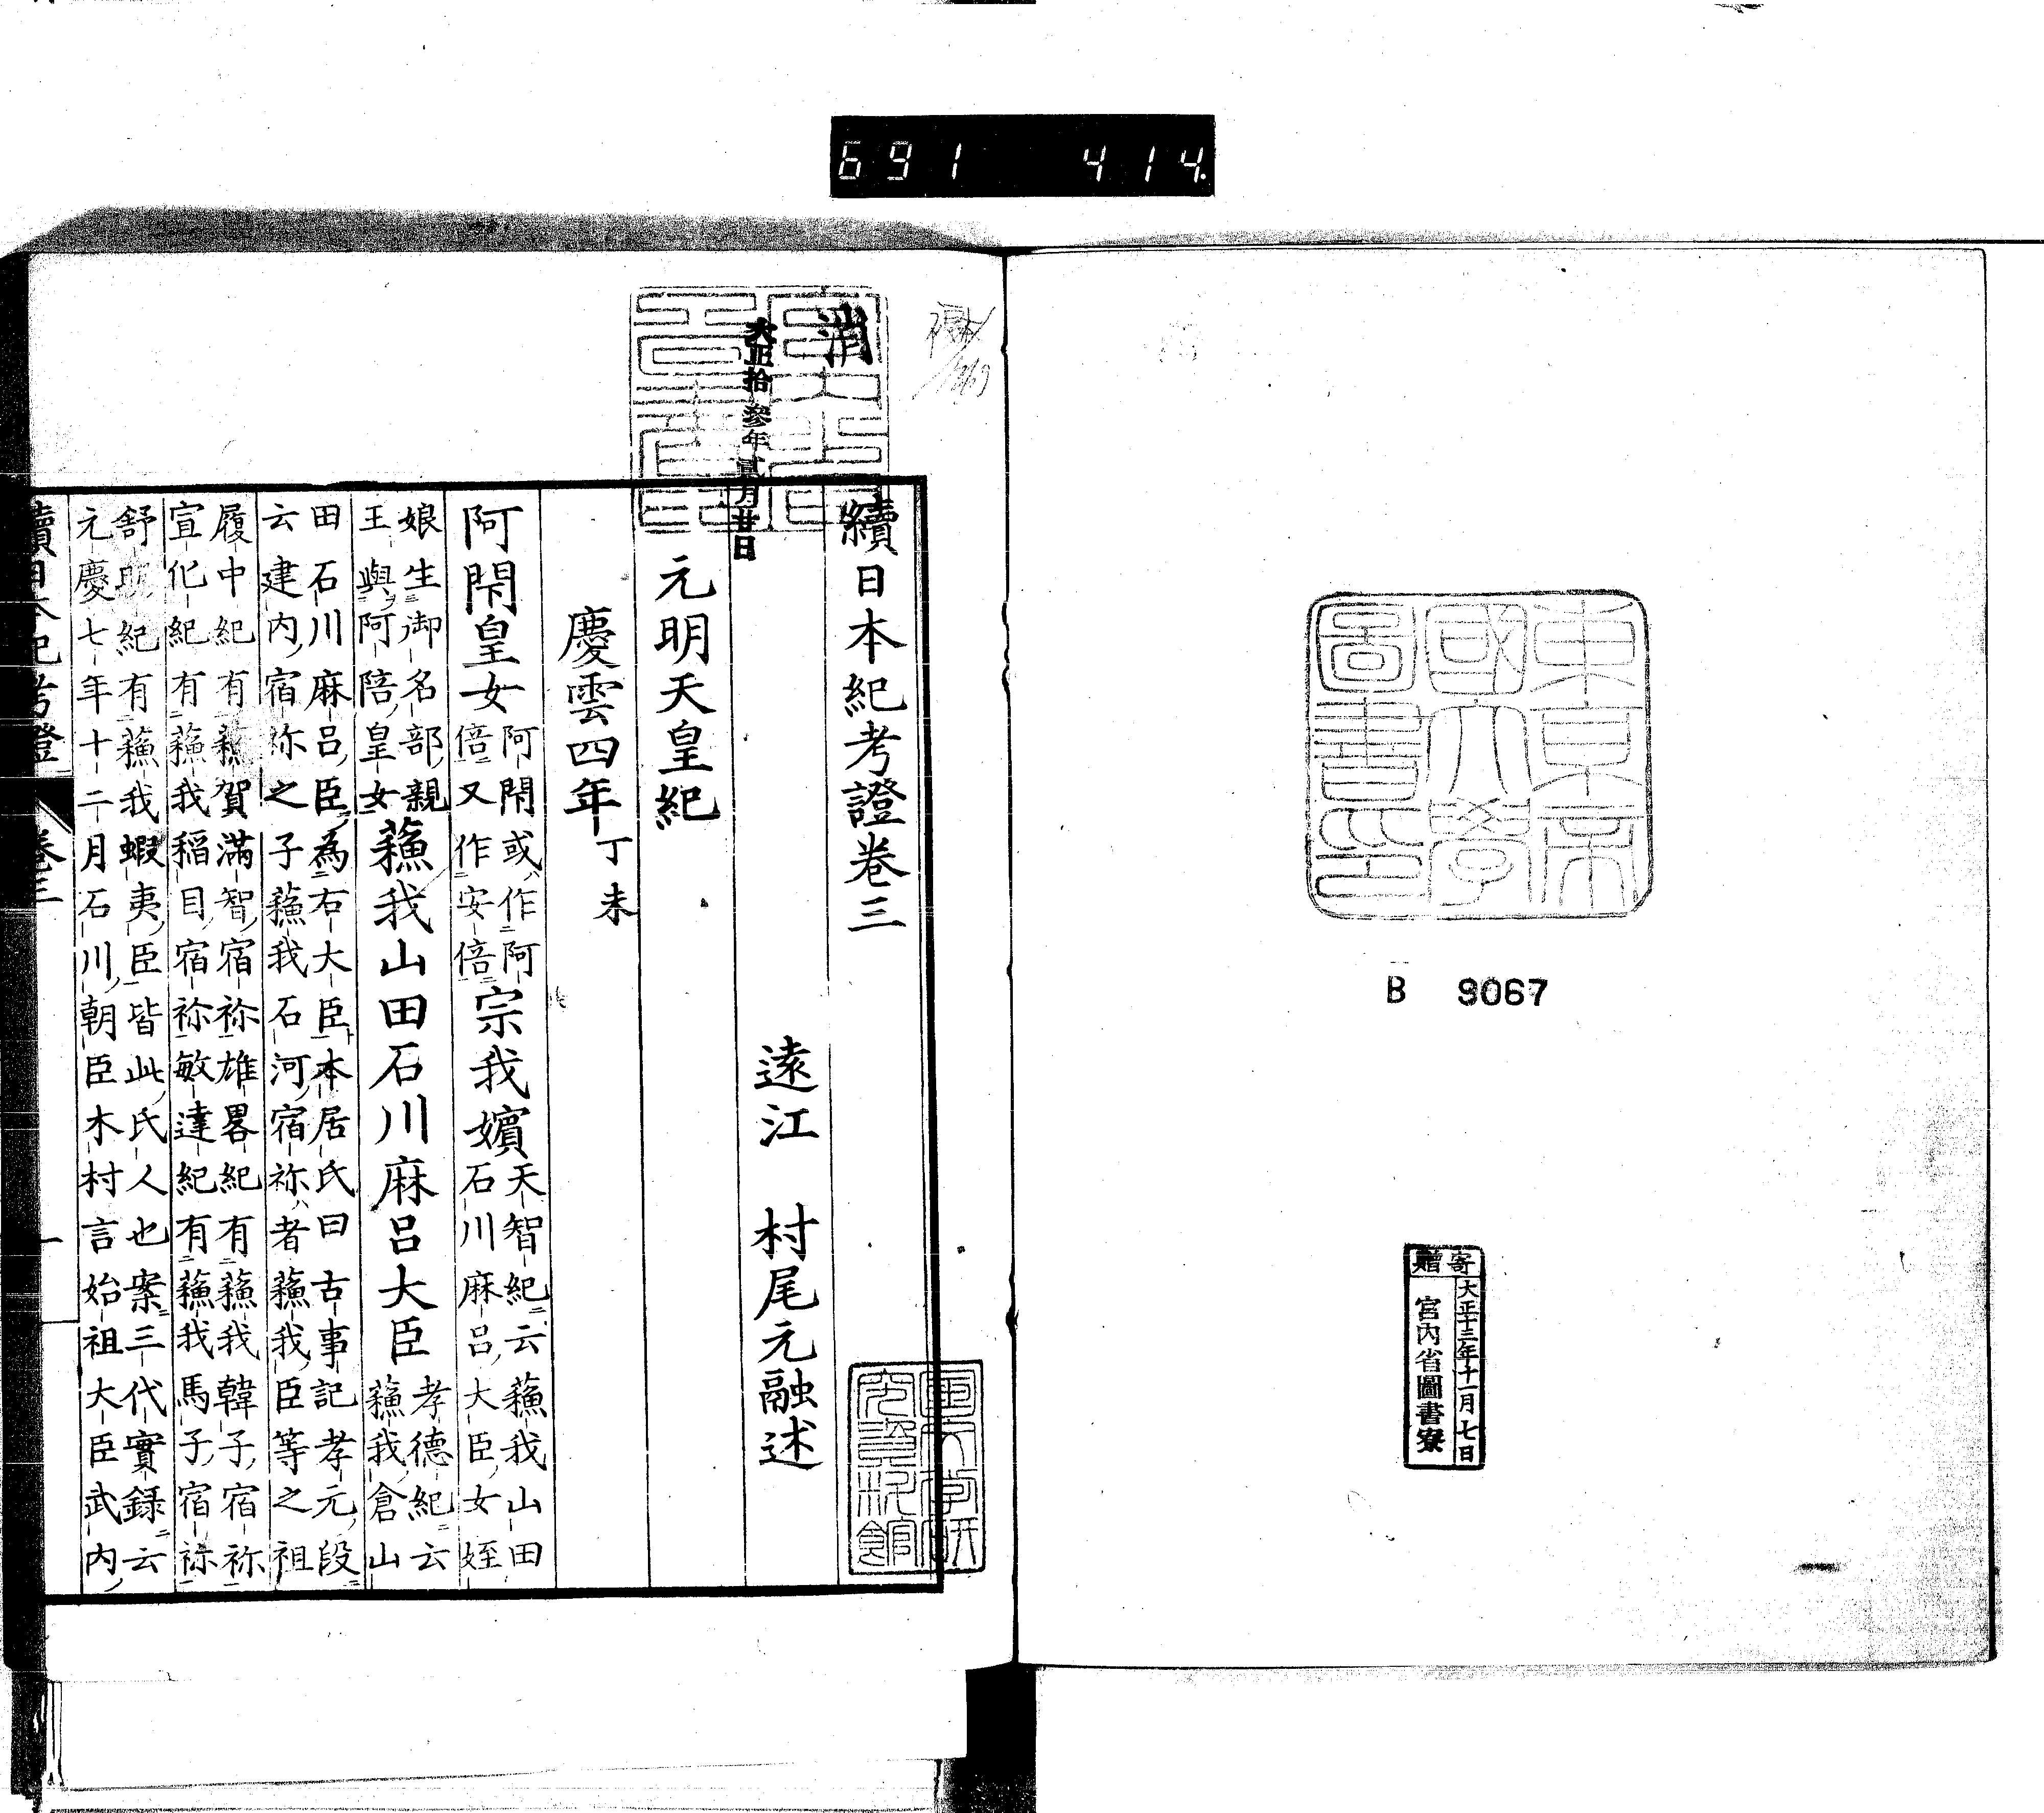 691 414.
東京帝
國大學
圖書印
B 9067
寄贈
大正十三年十一月七日
宮內省圖書寮
消
大正拾參年貳月廿日
續日本紀考證卷三
遠江 村尾元融述
元明天皇紀
慶雲四年丁未
阿閇皇女
阿閇或作阿
倍又作安倍
宗我嬪
天智紀云蘓我山田
石川麻呂大臣女姪
娘生御名部親
王與阿陪皇女
蘓我山田石川麻呂大臣
孝德紀云
蘓我倉山
田石川麻呂臣爲右大臣本居氏曰古事記孝元段
云建內宿祢之子蘓我石河宿祢者蘓我臣等之祖
履中紀有蘓賀滿智宿祢雄畧紀有蘓我韓子宿祢
宣化紀有蘓我稲目宿祢敏達紀有蘓我馬子宿祢
舒明紀有蘓我蝦夷臣皆此氏人也案三代實録云
元慶七年十二月石川朝臣木村言始祖大臣武內
續日本紀考證 卷三 一